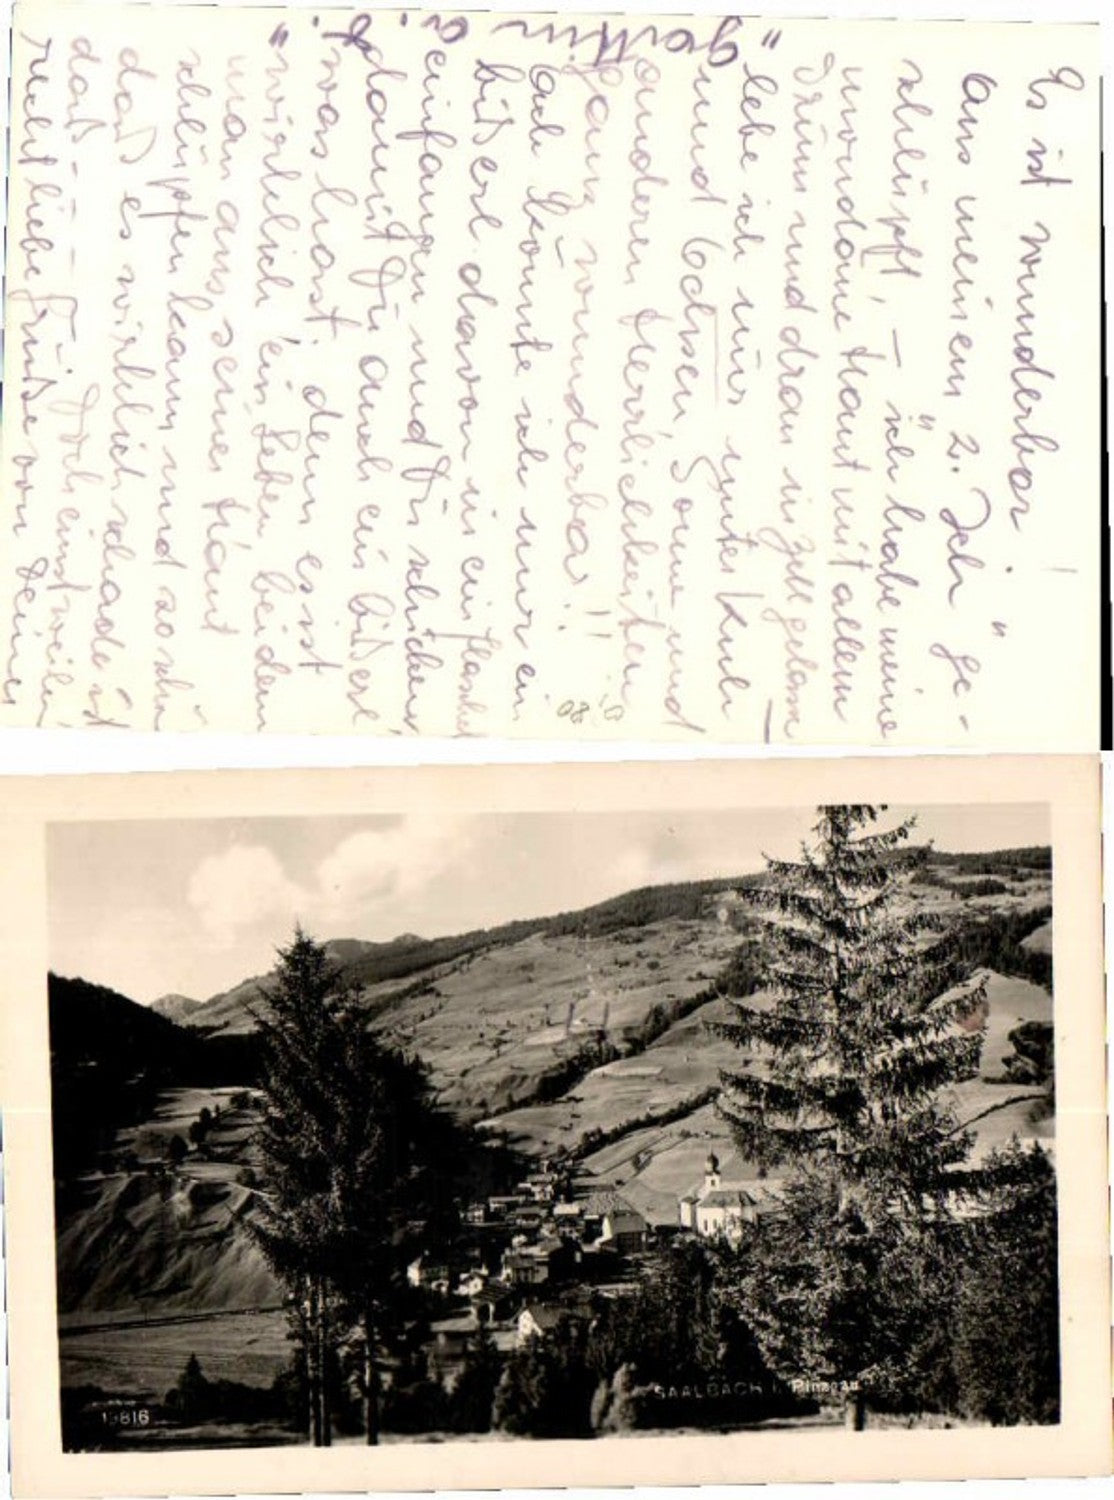 Es ist wunderbar!
Aus meinem 2. „Ich" ge-
schlüpft, – ich habe meine
mondäne Haut mit allem
Drum und dran in Zell gelassen
"lebe ich nur unter Kuh
und Ochsen, Sonne und
anderen Herrlichkeiten
ganz wunderbar!!
Ach könnte ich nur ein
bißerl davon in ein Flascherl
einfangen und Dir schicken,
damit Du auch ein bißerl
was hast, denn es ist
"wirklich ein Leben bei dem
man aus seiner Haut
schlüpfen kann und so schön
daß es wirklich schade ist
daß - - - - Doch einstweilen
recht liebe Grüße von Deiner
08
SAALBACH i. Pinzgau
13816